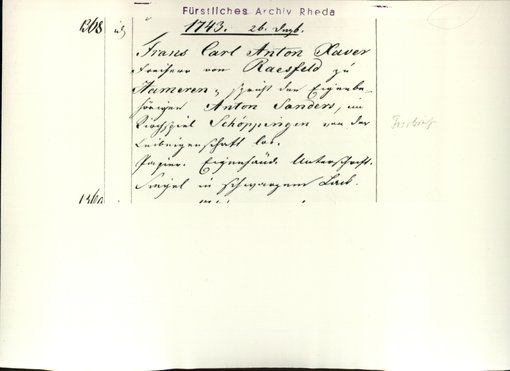 Fürstliches Archiv Rheda
1368
1743. 26. Dezb.
Franz Carl Anton Xaver
Freiherr von Raesfeld zu
Hameren, spricht den Eigenbe-
hörigen Anton Sanders, im
Kirchspiel Schöppingen von der
Leibeigenschaft los.
Papier. Eigenhänd. Unterschrift.
Siegel in schwarzem Lack.
Freibrief